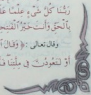 رَبُّنَا كُلَّ شَيْءٍ عِلْمًا عَلَى
بِالْحَقِّ وَأَنتَ خَيْرُ الْفَاتِحِينَ
وقال تعالى : ﴿ وَقَالَ
أَوْ لَتَعُودُنَّ فِي مِلَّتِنَا